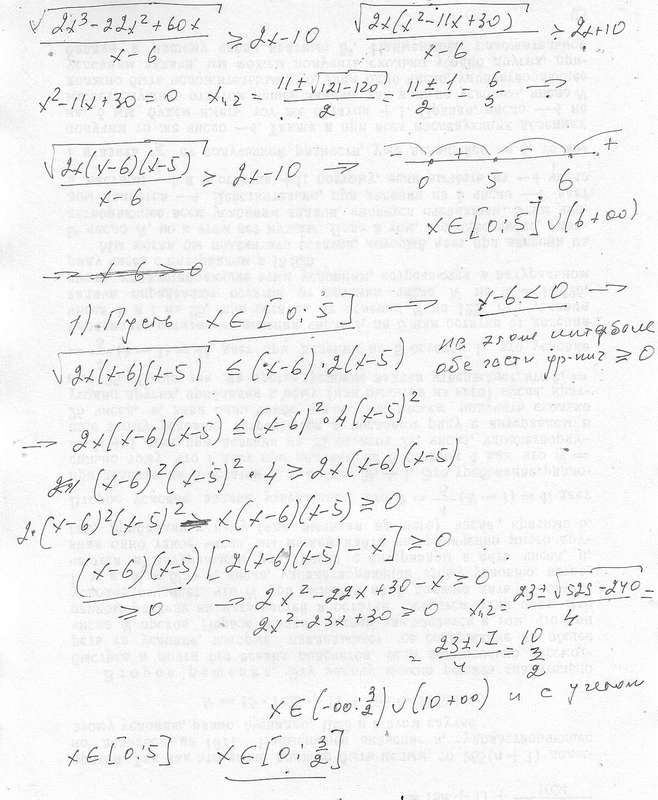 √(2x³-22x²+60x) / (x-6) ≥ 2x-10   √(2x(x²-11x+30)) / (x-6) ≥ 2x+10
x²-11x+30=0   x₁,₂ = (11±√(121-120))/2 = (11±1)/2 = 6 5 ⇒
√(2x(x-6)(x-5)) / (x-6) ≥ 2x-10 ⇒ - + - +
0 5 6
x∈[0;5]∪(6+∞)
→ x-6>0
1) Пусть x∈[0;5] → x-6<0 →
√(2x(x-6)(x-5)) ≤ (x-6)·2(x-5)   на этом интервале
обе части ур-ния ≥0
→ 2x(x-6)(x-5) ≤ (x-6)²·4(x-5)²
(x-6)²(x-5)²·4 ≥ 2x(x-6)(x-5)
2·(x-6)²(x-5)² - x(x-6)(x-5) ≥ 0
(x-6)(x-5)[2(x-6)(x-5)-x] ≥ 0
≥0 → 2x²-22x+30-x ≥ 0
2x²-23x+30 ≥ 0   x₁,₂ = (23±√(525-240))/4 =
= (23±17)/4 = 10 3/2
x∈(-∞;3/2)∪(10+∞) и с учетом
x∈[0;5]   x∈[0;3/2]